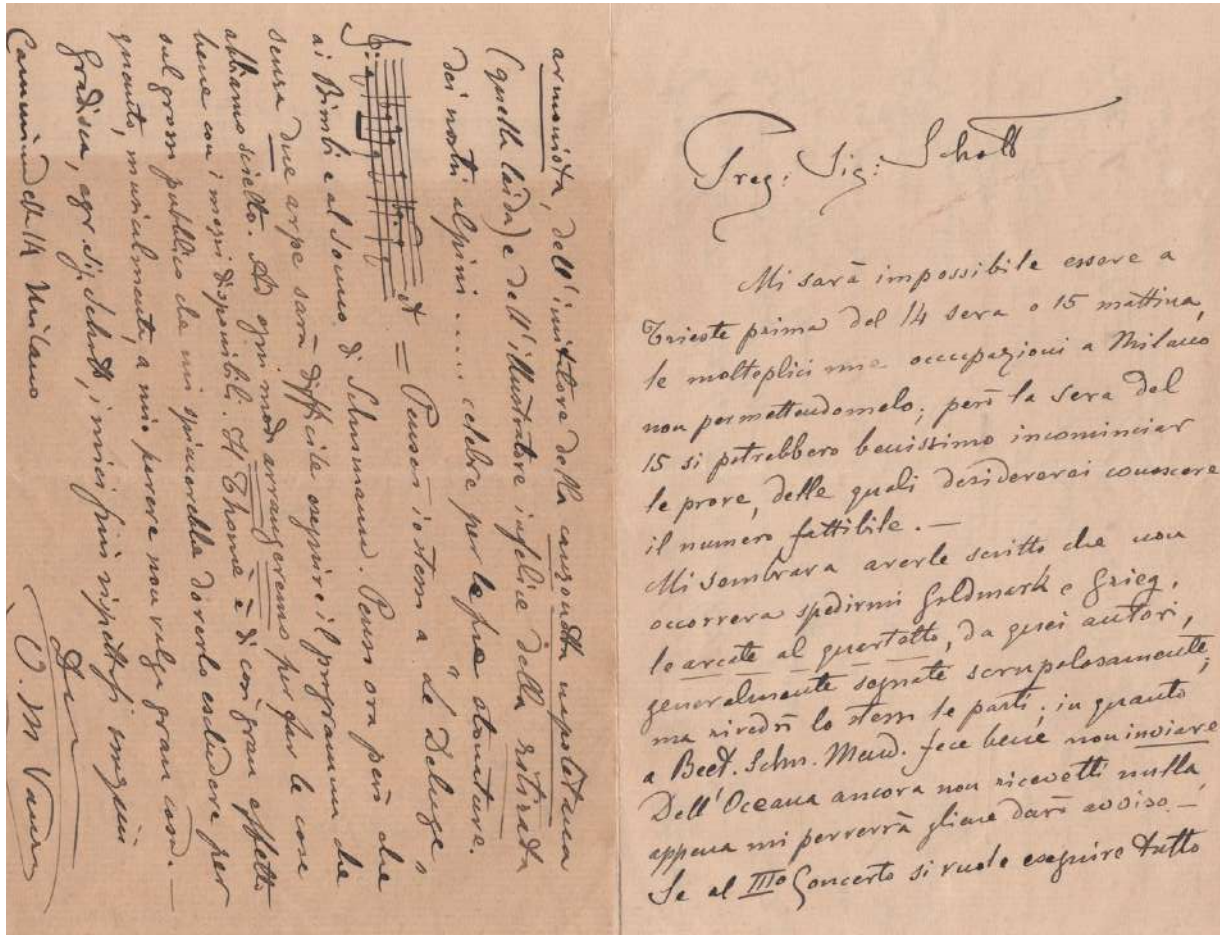 Preg: Sig: Schott
Mi sarà impossibile essere a
Trieste prima del 14 sera o 15 mattina,
le molteplici mie occupazioni a Milano
non permettendomelo; però la sera del
15 si potrebbero benissimo incominciar
le prove, delle quali desidererei conoscere
il numero fattibile. —
Mi sembrava averle scritto che non
occorreva spedirmi Goldmark e Grieg,
le arcate al quartetto, da quei autori,
generalmente segnate scrupolosamente,
ma rivedrò lo stesso le parti; in quanto
a Beet. Schu. Mend. fece bene non inviare
Dell'Oceana ancora non ricevetti nulla,
appena mi perverrà gliene darò avviso —
Se al IIIo Concerto si vuole eseguire tutto
armonista, dell'imitatore della canzonetta napoletana
(quella laida) e dell'illustratore infelice della ritirata
dei nostri alpini ..... celebre per le sue stonature.
= Pensai io stesso a Le Deluge,
ai Bimbi e al sonno di Schumann. Penso ora però che
senza due arpe sarà difficile eseguire il programma che
abbiamo scielto. Ad ogni modo arrangeremo per far le cose
bene con i mezzi disponibili. Il Thomé è di con gran effetto
sul grosso pubblico che mi spiacerebbe doverlo escludere per
quanto, musicalmente, a mio parere non valga gran cosa. —
Gradisca, egr. sig. Schott, i miei più rispettosi ossequi
Camminadella 14 Milano
O. M. Vanzo